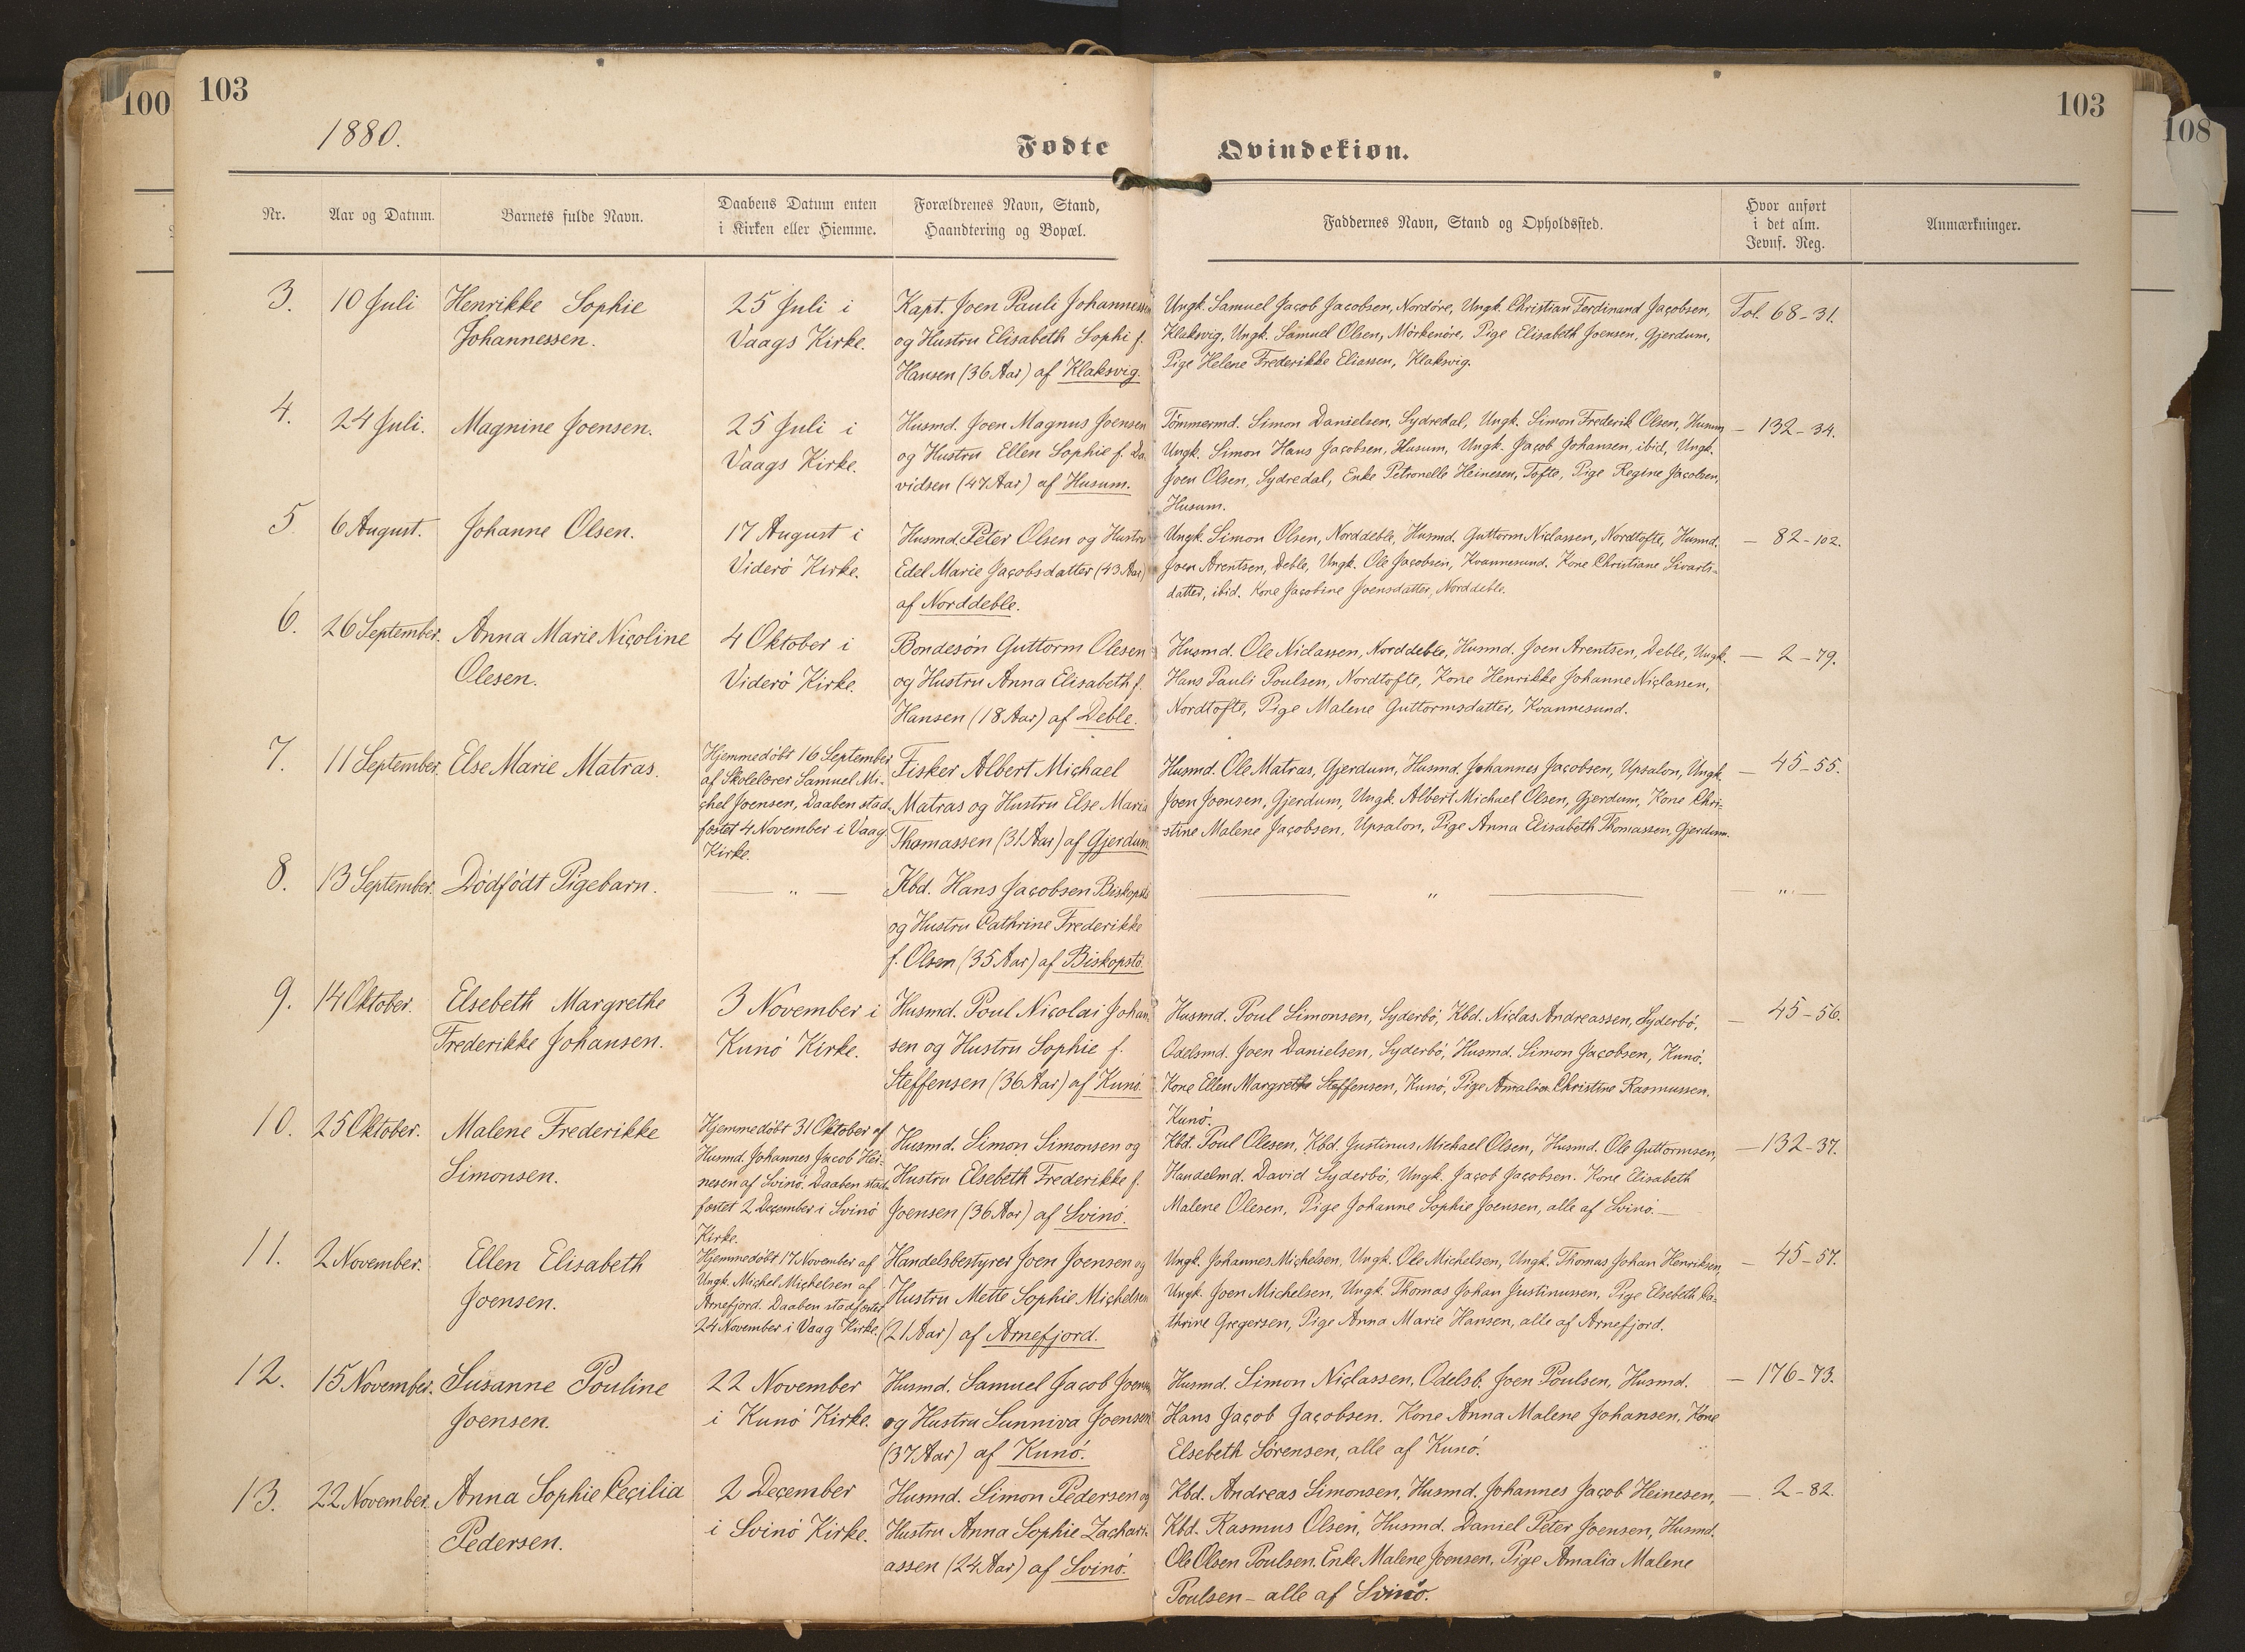 100
103
103
108
1880.
Fødte Qvindekiøn.
Nr.
Aar og Datum.
Barnets fulde Navn.
Daabens Datum enten
i Kirken eller Hiemme.
Forældrenes Navn, Stand,
Haandtering og Bopæl.
Faddernes Navn, Stand og Opholdssted.
Hvor anført
i det alm.
Jevnf. Reg.
Anmærkninger.
3.
10 Juli
Henrikke Sophie
Johannessen.
25 Juli i
Vaags Kirke.
Kapt. Joen Pauli Johannessen
og Hustru Elisabeth Sophi f.
Hansen (36 Aar) af Klaksvig.
Ungk. Samuel Jacob Jacobsen, Nordøre, Ungk. Christian Ferdinand Jacobsen,
Klaksvig, Ungk. Samuel Olsen, Mörkenöre, Pige Elisabeth Joensen, Gjerdum,
Pige Helene Frederikke Eliassen, Klaksvig.
Fol. 68-31.
4.
24 Juli.
Magnine Joensen.
25 Juli i
Vaags Kirke.
Husmd. Joen Magnus Joensen
og Hustru Ellen Sophie f. Da-
vidsen (47 Aar) af Husum.
Tömmermd. Simon Danielsen, Sydredal, Ungk. Simon Frederik Olsen, Husum
Ungk. Simon Hans Jacobsen, Husum, Ungk. Jacob Johansen, ibid, Ungk.
Joen Olsen, Sydredal, Enke Petronelle Heinesen, Tofte, Pige Regine Jacobsen,
Husum.
— 132-34.
5
6 August.
Johanne Olsen.
17 August i
Viderö Kirke.
Husmd. Peter Olsen og Hustru
Edel Marie Jacobsdatter (43 Aar)
af Norddeble.
Ungk. Simon Olsen, Norddeble, Husmd. Guttorm Niclassen, Nordtofte, Husmd.
Joen Arentsen, Deble, Ungk. Ole Jacobsen, Kvannesund. Kone Christiane Sivarts-
datter, ibid. Kone Jacobine Joensdatter, Norddeble.
— 82-102.
6.
26 September.
Anna Marie Nicoline
Olesen.
4 Oktober i
Viderö Kirke.
Bondesön Guttorm Olesen
og Hustru Anna Elisabeth f.
Hansen (18 Aar) af Deble.
Husmd. Ole Niclassen, Norddeble, Husmd. Joen Arentsen, Deble, Ungk.
Hans Pauli Poulsen, Nordtofte, Kone Henrikke Johanne Niclassen,
Nordtofte, Pige Malene Guttormsdatter, Kvannesund.
— 2-79.
7.
11 September.
Else Marie Matras.
Hjemmedöbt 16 September
af Skolelærer Samuel Mi-
chel Joensen, Daaben stad-
fæstet 4 November i Vaag
Kirke.
Fisker Albert Michael
Matras og Hustru Else Maria
Thomassen (31 Aar) af Gjerdum
Husmd. Ole Matras, Gjerdum, Husmd. Johannes Jacobsen, Upsalon, Ungk.
Joen Joensen, Gjerdum, Ungk. Albert Michael Olsen, Gjerdum, Kone Chri-
stine Malene Jacobsen, Upsalon, Pige Anna Elisabeth Thomassen, Gjerdum.
— 45-55.
8.
13 September.
Dödfödt Pigebarn.
— „ —
Kbd. Hans Jacobsen Biskopstö
og Hustru Cathrine Frederikke
f. Olsen (35 Aar) af Biskopstö.
— „ —
— „ —
9.
14 Oktober.
Elsebeth Margrethe
Frederikke Johansen.
3 November i
Kunö Kirke.
Husmd. Poul Nicolai Johan-
sen og Hustru Sophie f.
Steffensen (36 Aar) af Kunö.
Husmd. Poul Simonsen, Syderbö, Kbd. Niclas Andreassen, Syderbö,
Odelsmd. Joen Danielsen, Syderbö, Husmd. Simon Jacobsen, Kunö.
Kone Ellen Margrethe Steffensen, Kunö, Pige Amalia Christine Rasmussen.
Kunö.
— 45-56.
10.
25 Oktober.
Malene Frederikke
Simonsen.
Hjemmedöbt 31 Oktober af
Husmd. Johannes Jacob Hei-
nesen af Svinö. Daaben stad-
fæstet 2 December i Svinö
Kirke.
Husmd. Simon Simonsen og
Hustru Elsebeth Frederikke f.
Joensen (36 Aar) af Svinö.
Kbd. Poul Olesen, Kbd. Justinus Michael Olsen, Husmd. Ole Guttormsen,
Handelmd. David Syderbö, Ungk. Jacob Jacobsen. Kone Elisabeth
Malene Olesen, Pige Johanne Sophie Joensen, alle af Svinö. —
— 132-37.
11.
2 November.
Ellen Elisabeth
Joensen.
Hjemmedöbt 17 November af
Ungk. Michel Michelsen af
Arnefjord. Daaben stadfæstet
24 November i Vaag Kirke.
Handelsbestyrer Joen Joensen og
Hustru Mette Sophie Michelsen
(21 Aar) af Arnefjord.
Ungk. Johannes Michelsen, Ungk. Ole Michelsen, Ungk. Thomas Johan Henriksen,
Ungk. Joen Michelsen, Ungk. Thomas Johan Justinussen, Pige Elsebeth Ca-
thrine Gregersen, Pige Anna Marie Hansen, alle af Arnefjord.
— 45-57.
12.
15 November.
Susanne Pouline
Joensen.
22 November
i Kunö Kirke.
Husmd. Samuel Jacob Joensen
og Hustru Sunniva Joensen
(37 Aar) af Kunö.
Husmd. Simon Niclassen, Odelsb. Joen Poulsen, Husmd.
Hans Jacob Jacobsen. Kone Anna Malene Johansen, Kone
Elsebeth Sörensen, alle af Kunö.
— 176-73.
13.
22 November.
Anna Sophie Cecilia
Pedersen.
2 December
i Svinö Kirke.
Husmd. Simon Pedersen og
Hustru Anna Sophie Zachari-
assen (24 Aar) af Svinö.
Kbd. Andreas Simonsen, Husmd. Johannes Jacob Heinesen,
Kbd. Rasmus Olsen, Husmd. Daniel Peter Joensen, Husmd.
Ole Olsen Poulsen. Enke Malene Joensen, Pige Amalia Malene
Poulsen – alle af Svinö.
— 2-82.